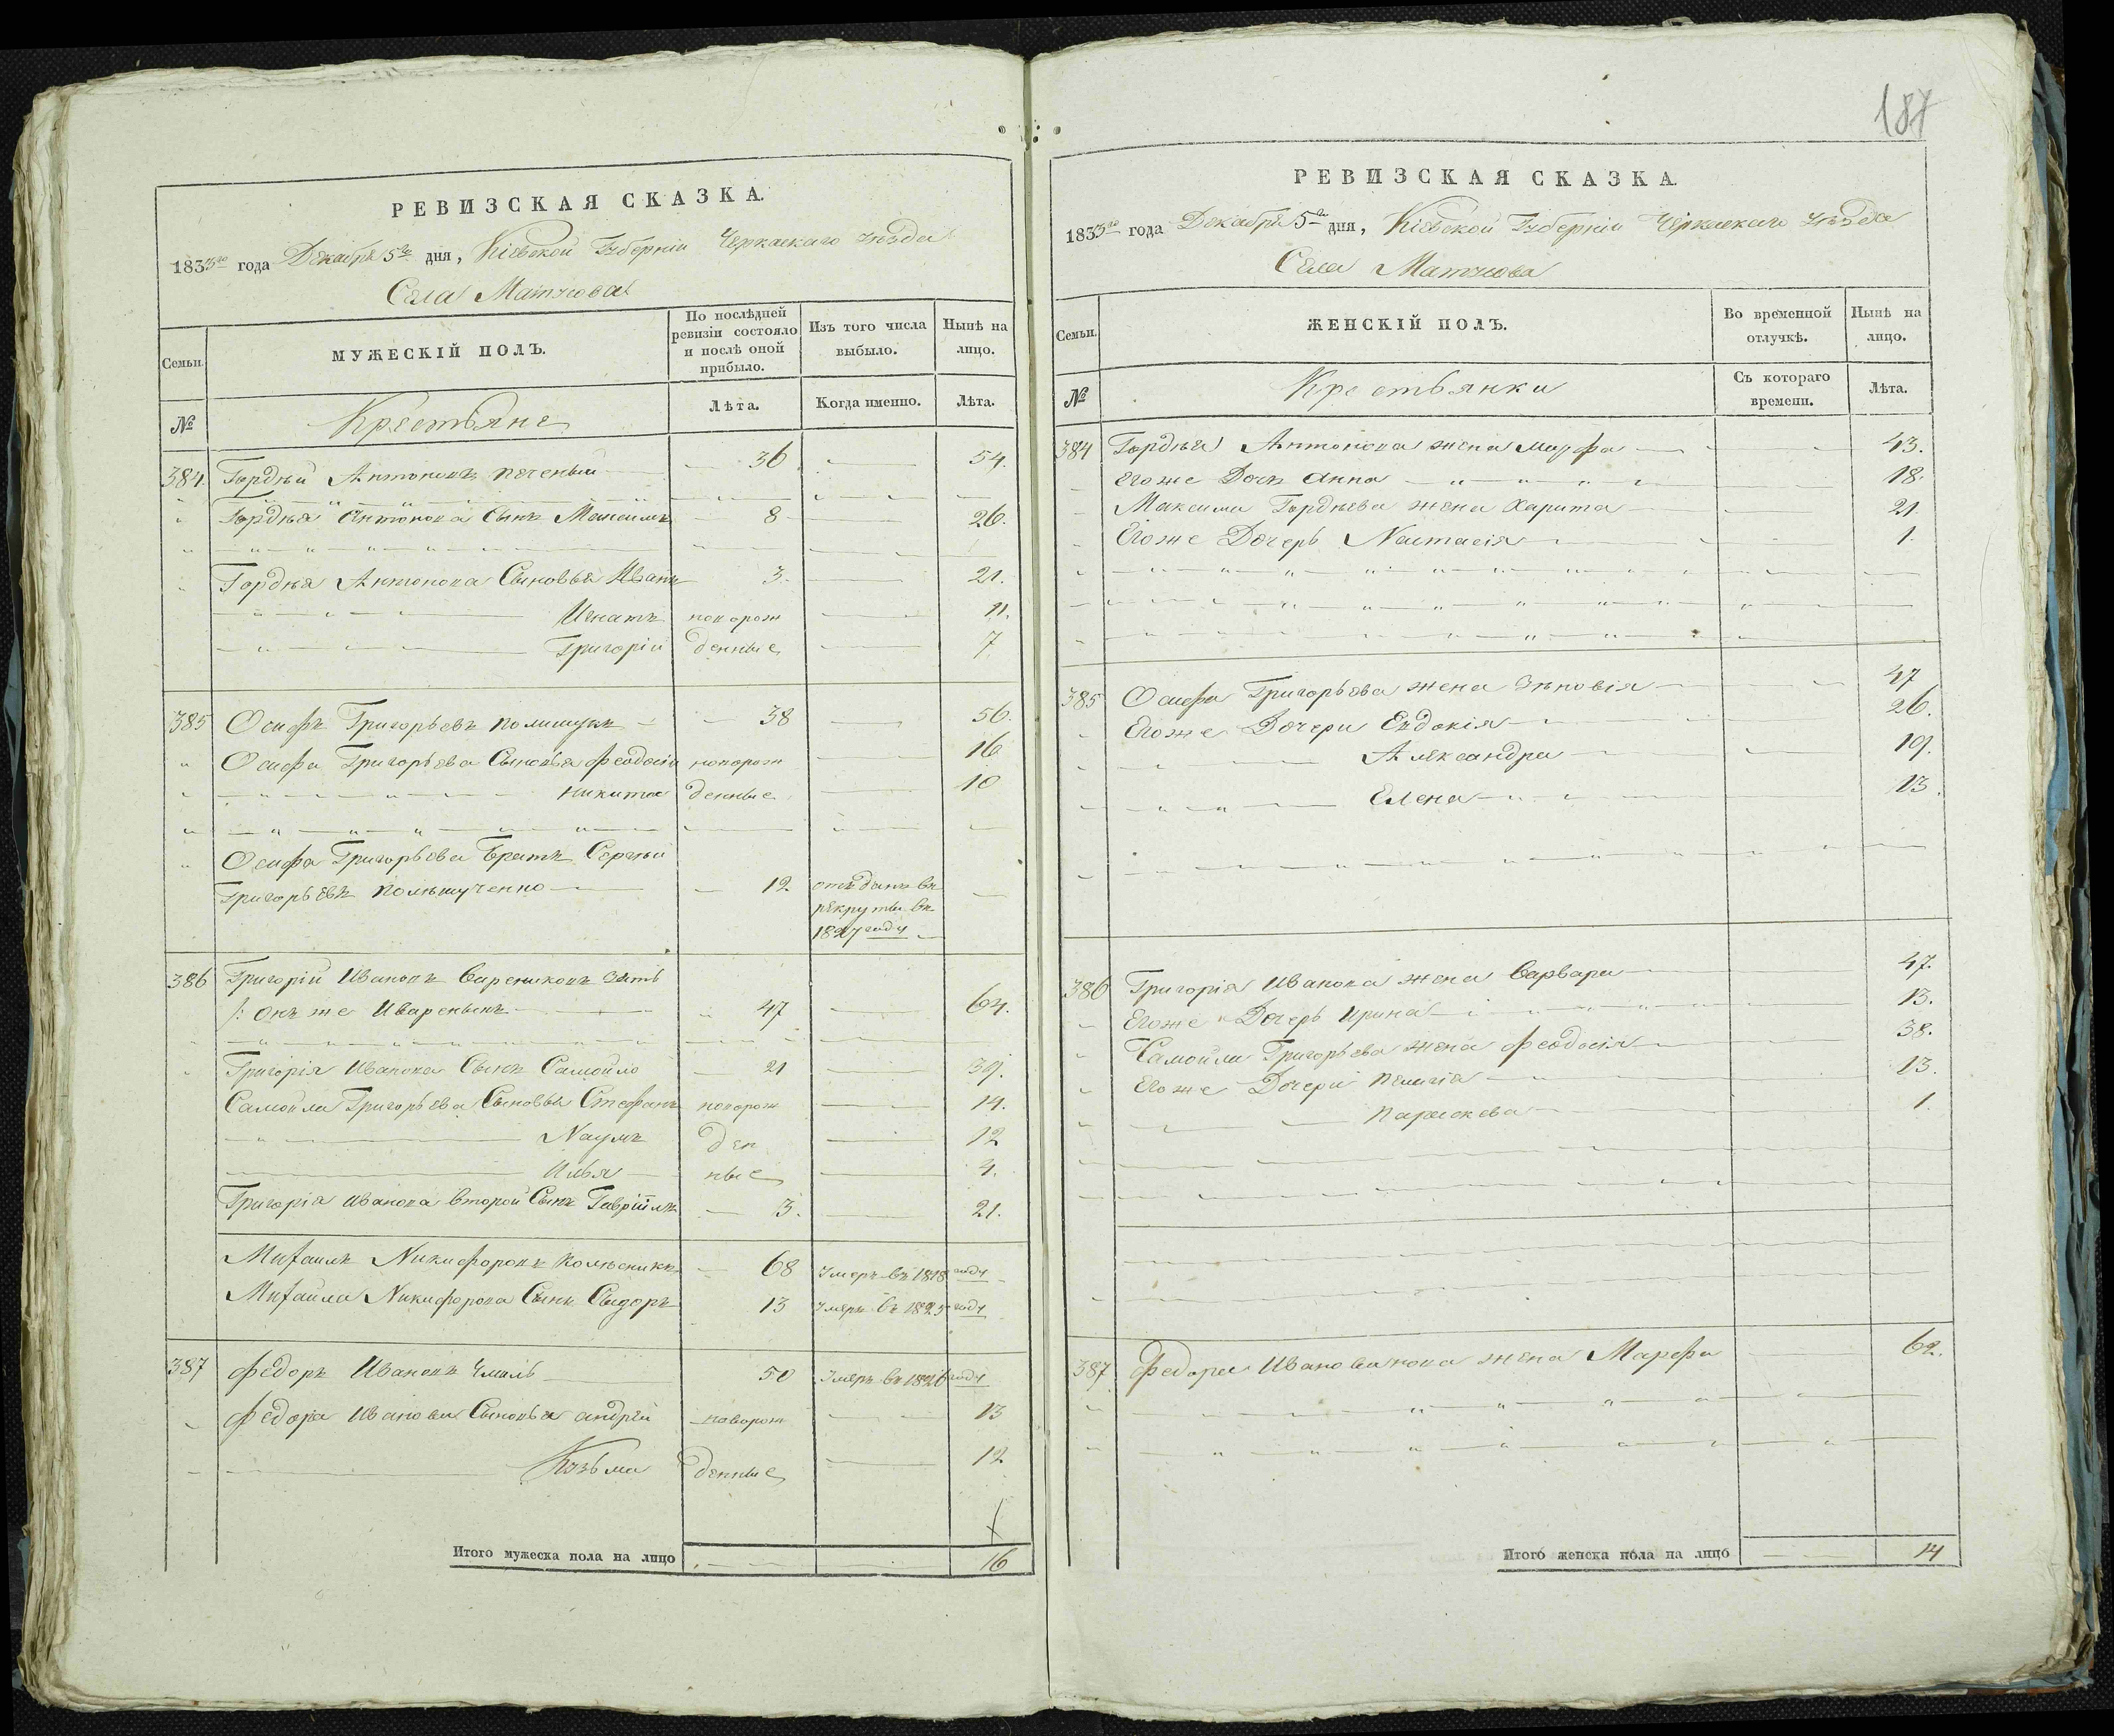 187
РЕВИЗСКАЯ СКАЗКА.
1833го года Декабря 5го дня, Кіевской Губерніи Черкаскаго уѣзда
Села Матусова
Семьи.
МУЖЕСКІЙ ПОЛЪ.
По послѣдней ревизіи состояло и послѣ оной прибыло.
Изъ того числа выбыло.
Нынѣ на лицо.
№
Крестьяне
Лѣта.
Когда именно.
Лѣта.
384. Гордѣй Антоновъ 36 54.
Гордѣя Антонова Сынъ Максимъ 8 26.
Гордѣя Антонова Сыновья Иванъ 3. 21.
Игнатъ новорож 11.
Григорій денные 7.
385 Осифъ Григорьевъ Полищукъ 38 56.
Осифа Григорьева Сыновья Феодосій новорож 16
Никита денные 10
Осифа Григорьева Братъ Сергѣй
Григорьевъ 12 отъданъ въ
рекруты въ
1827 году
386 Григорій Ивановъ Варениковъ зять
/: онъ же 47 64.
Григорія Иванова Сынъ Самойло 21 39.
Самойла Григорьева Сыновья Стефанъ новорож 14.
Наумъ ден 12
Илья ные 4.
Григорія Иванова второй Сынъ Гавріилъ 3. 21.
Михаилъ Никифоровъ Колѣсникъ 68 Умеръ въ 1818 году
Михаила Никифорова Сынъ Сидоръ 13 Умеръ въ 1825 году
387 Федоръ Ивановъ 50 Умеръ въ 1826 году
Федора Иванова Сыновья Андрей новорож 13
Козьма денные 12
Итого мужеска пола на лицо 16
РЕВИЗСКАЯ СКАЗКА.
1833го года Декабря 5го дня, Кіевской Губерніи Черкаскаго уѣзда
Села Матусова
Семьи.
ЖЕНСКІЙ ПОЛЪ.
Во временной отлучкѣ.
Нынѣ на лицо.
№
Крестьянки
Съ котораго времени.
Лѣта.
384 Гордѣя Антонова жена Марфа 43.
Егоже Дочь Анна 18.
Максима Гордѣева жена Харита 21.
Егоже Дочерь Настасія 1.
385 Осифа Григорьева жена Зѣновія 47
Егоже Дочери Евдокія 26.
Александра 19.
Елена 13.
386 Григорія Иванова жена Варвара 47.
Егоже Дочерь Ирина 13.
Самойла Григорьева жена Феодосія 38.
Егоже Дочери Пелагія 13.
Параскева 1.
387 Федора жена Марфа 62.
Итого женска пола на лицо 14